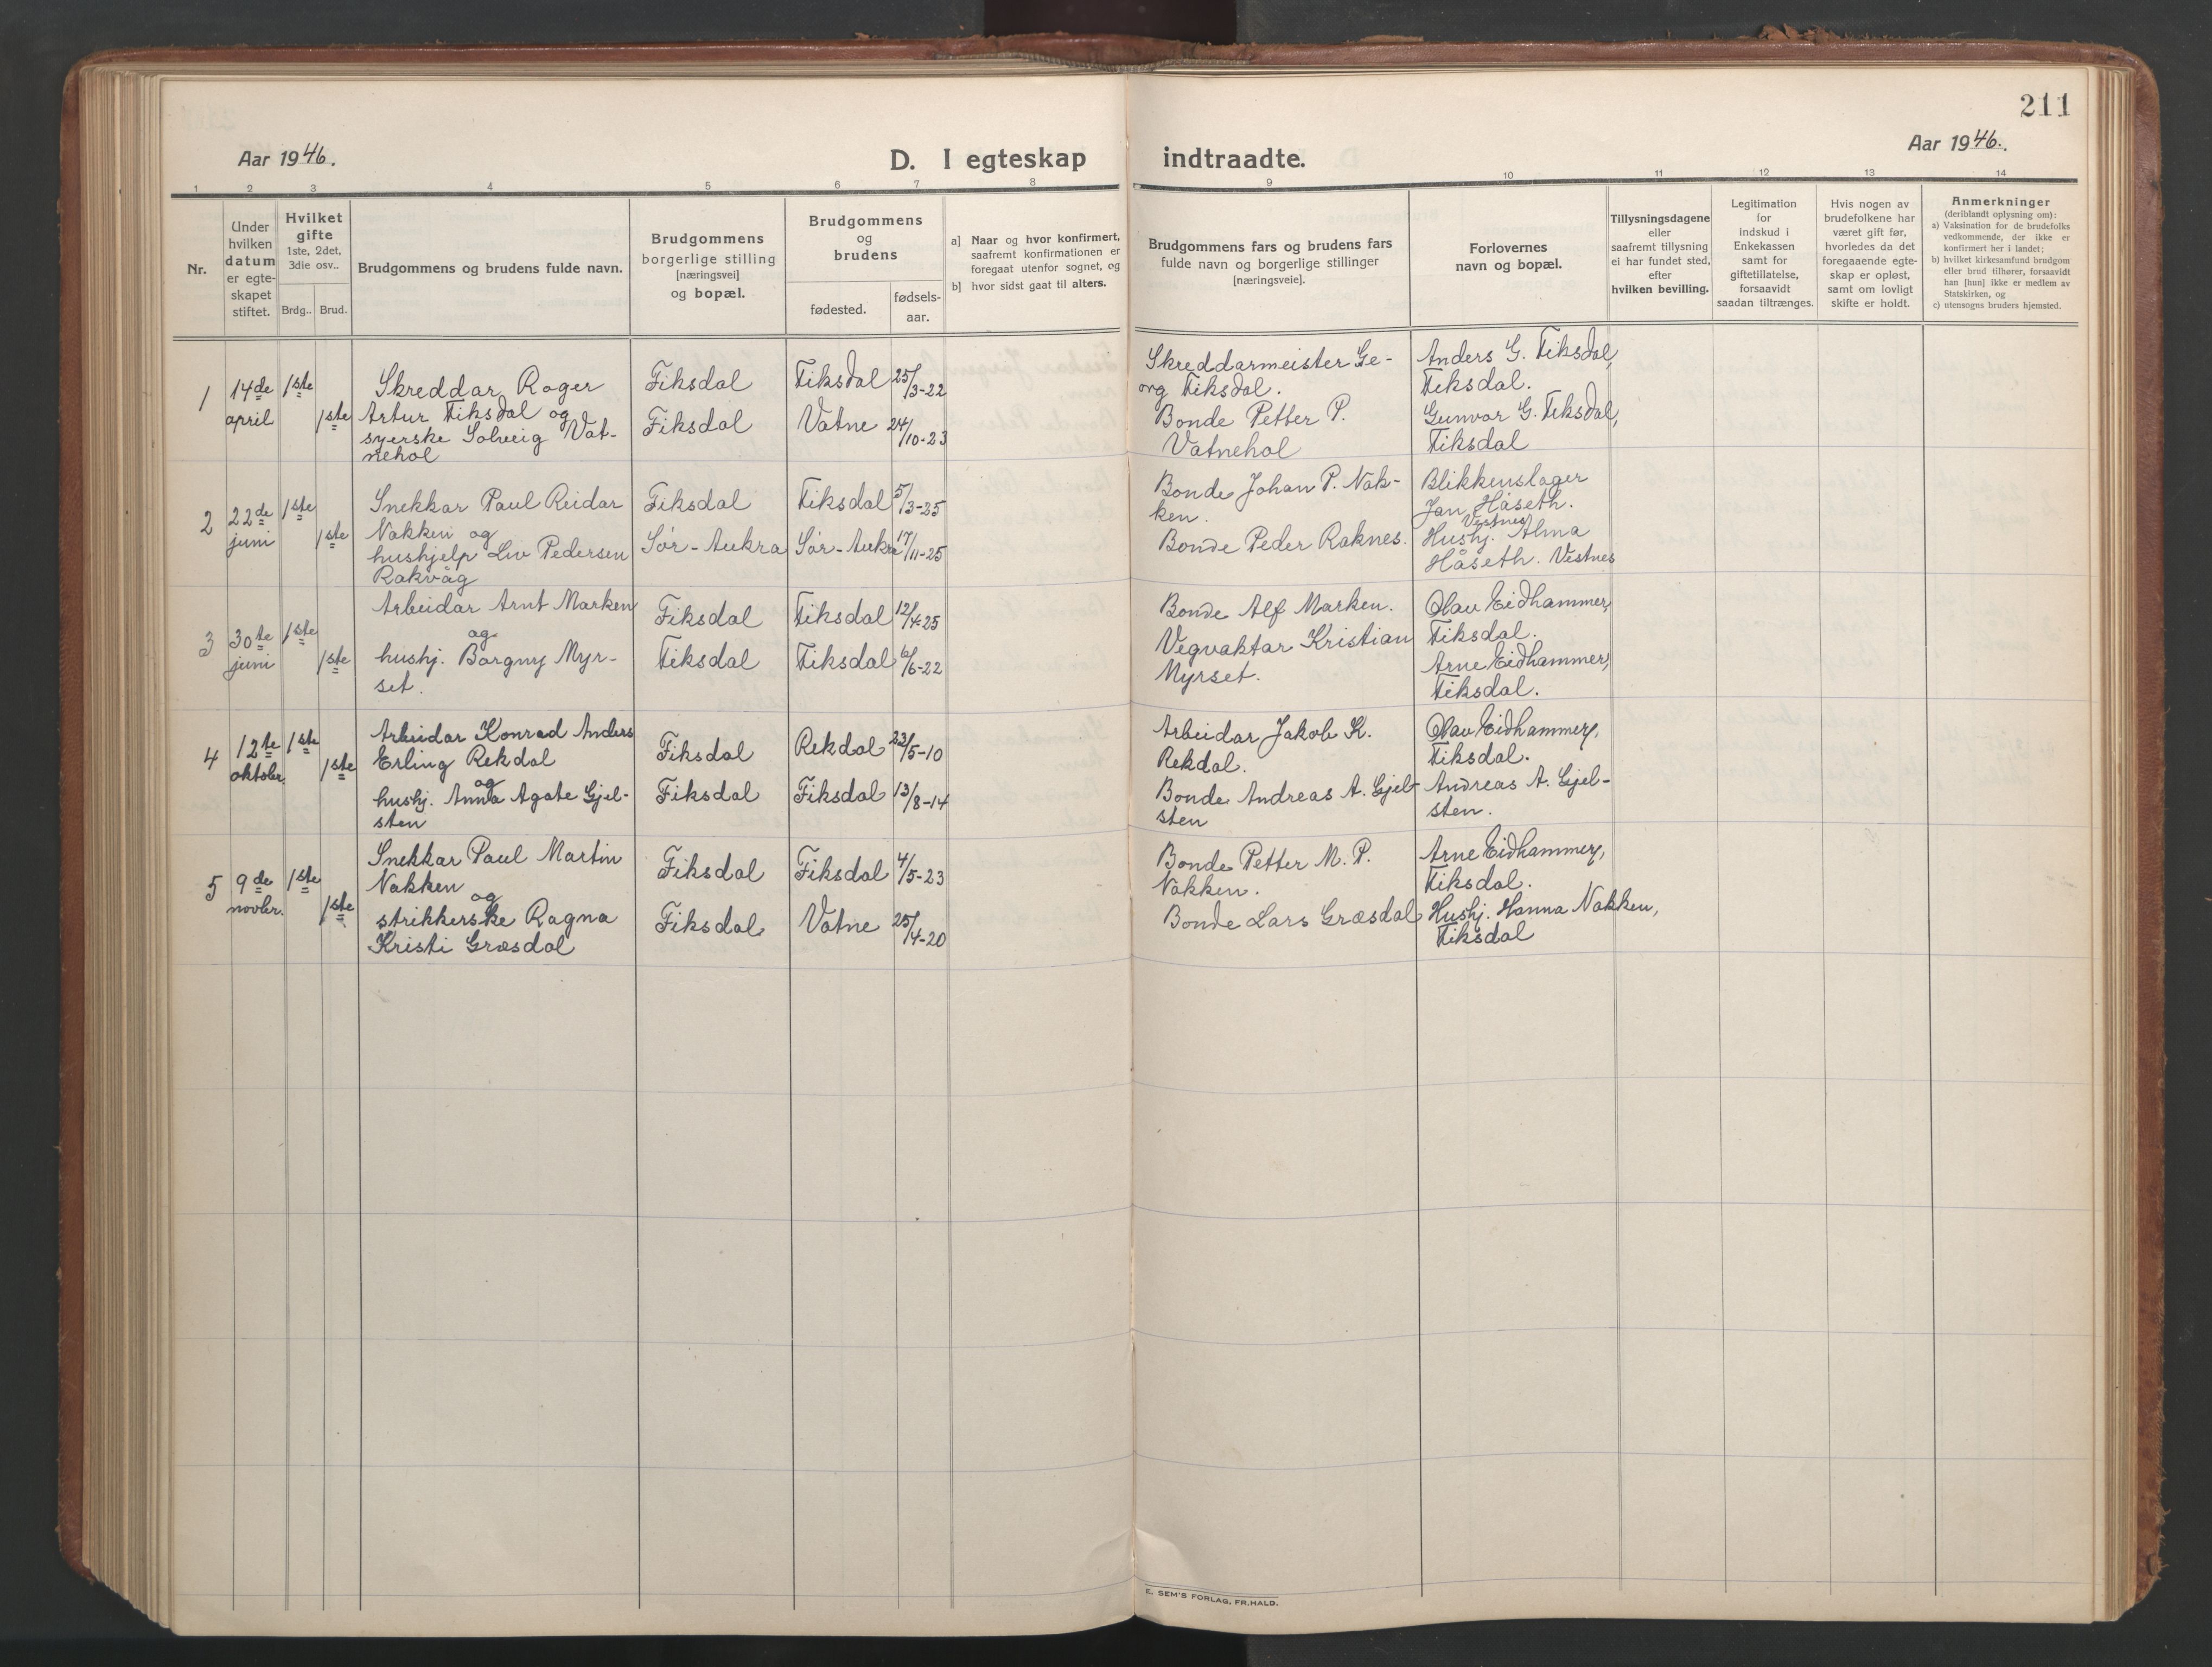 211
Aar 1946.
D. I egteskap indtraadte.
Aar 1946.
1 2 3 4 5 6 7 8 9 10 11 12 13 14
Nr.
Under
hvilken
datum
er egte-
skapet
stiftet.
Hvilket
gifte
1ste, 2det,
3die osv..
Brdg.. Brud.
Brudgommens og brudens fulde navn.
Brudgommens
borgerlige stilling
[næringsvei]
og bopæl.
Brudgommens
og
brudens
fødested.
fødsels-
aar.
a] Naar og hvor konfirmert,
saafremt konfirmationen er
foregaat utenfor sognet, og
b] hvor sidst gaat til alters.
Brudgommens fars og brudens fars
fulde navn og borgerlige stillinger
[næringsveie].
Forlovernes
navn og bopæl.
Tillysningsdagene
eller
saafremt tillysning
ei har fundet sted,
efter
hvilken bevilling.
Legitimation
for
indskud i
Enkekassen
samt for
giftetillatelse,
forsaavidt
saadan tiltrænges.
Hvis nogen av
brudefolkene har
været gift før,
hvorledes da det
foregaaende egte-
skap er opløst,
samt om lovligt
skifte er holdt.
Anmerkninger
(deriblandt oplysning om):
a) Vaksination for de brudefolks
vedkommende, der ikke er
konfirmert her i landet;
b) hvilket kirkesamfund brudgom
eller brud tilhører, forsaavidt
han [hun] ikke er medlem av
Statskirken, og
c) utensogns bruders hjemsted.
1
14de
april
1ste
1ste
Skreddar Roger
Artur Fiksdal og
syerske Solveig Vat-
nehol
Fiksdal
Fiksdal
Fiksdal 25/3-22
Vatne 24/10-23
Skreddarmeister Ge-
org Fiksdal.
Bonde Petter P.
Vatnehol
Anders G. Fiksdal,
Fiksdal.
Gunvor G. Fiksdal,
Fiksdal
2
22de
juni
1ste
1ste
Snekkar Paul Reidar
Nakken og
hushjelp Liv Pedersen
Rakvåg
Fiksdal
Sør-Aukra
Fiksdal 5/3-25
Sør-Aukra 17/11-25
Bonde Johan P. Nak-
ken.
Bonde Peder Raknes.
Blikkenslager
Jan Håseth.
Vestnes
Hushj. Alma
Håseth. Vestnes
3
30te
juni
1ste
1ste
Arbeidar Arnt Marken
og
hushj. Borgny Myr-
set.
Fiksdal
Fiksdal
Fiksdal 12/4-25
Fiksdal 6/6-22
Bonde Alf Marken.
Vegvaktar Kristian
Myrset.
Olav Eidhammer,
Fiksdal.
Arne Eidhammer,
Fiksdal.
4
12te
oktober
1ste
1ste
Arbeidar Konrad Anders
Erling Rekdal
og
hushj. Anna Agate Gjel-
sten
Fiksdal
Fiksdal
Rekdal 23/5-10
Fiksdal 13/8-14
Arbeidar Jakob K.
Rekdal.
Bonde Andreas A. Gjel-
sten
Olav Eidhammer,
Fiksdal.
Andreas A. Gjel-
sten.
5
9de
novbr.
1ste
1ste
Snekkar Paul Martin
Nakken
og
strikkerske Ragna
Kristi Græsdal
Fiksdal
Fiksdal
Fiksdal 4/5-23
Vatne 25/4-20
Bonde Petter M. P.
Nakken.
Bonde Lars Græsdal
Arne Eidhammer,
Fiksdal.
Hushj. Hanna Nakken,
Fiksdal
E. SEM'S FORLAG, FR.HALD.